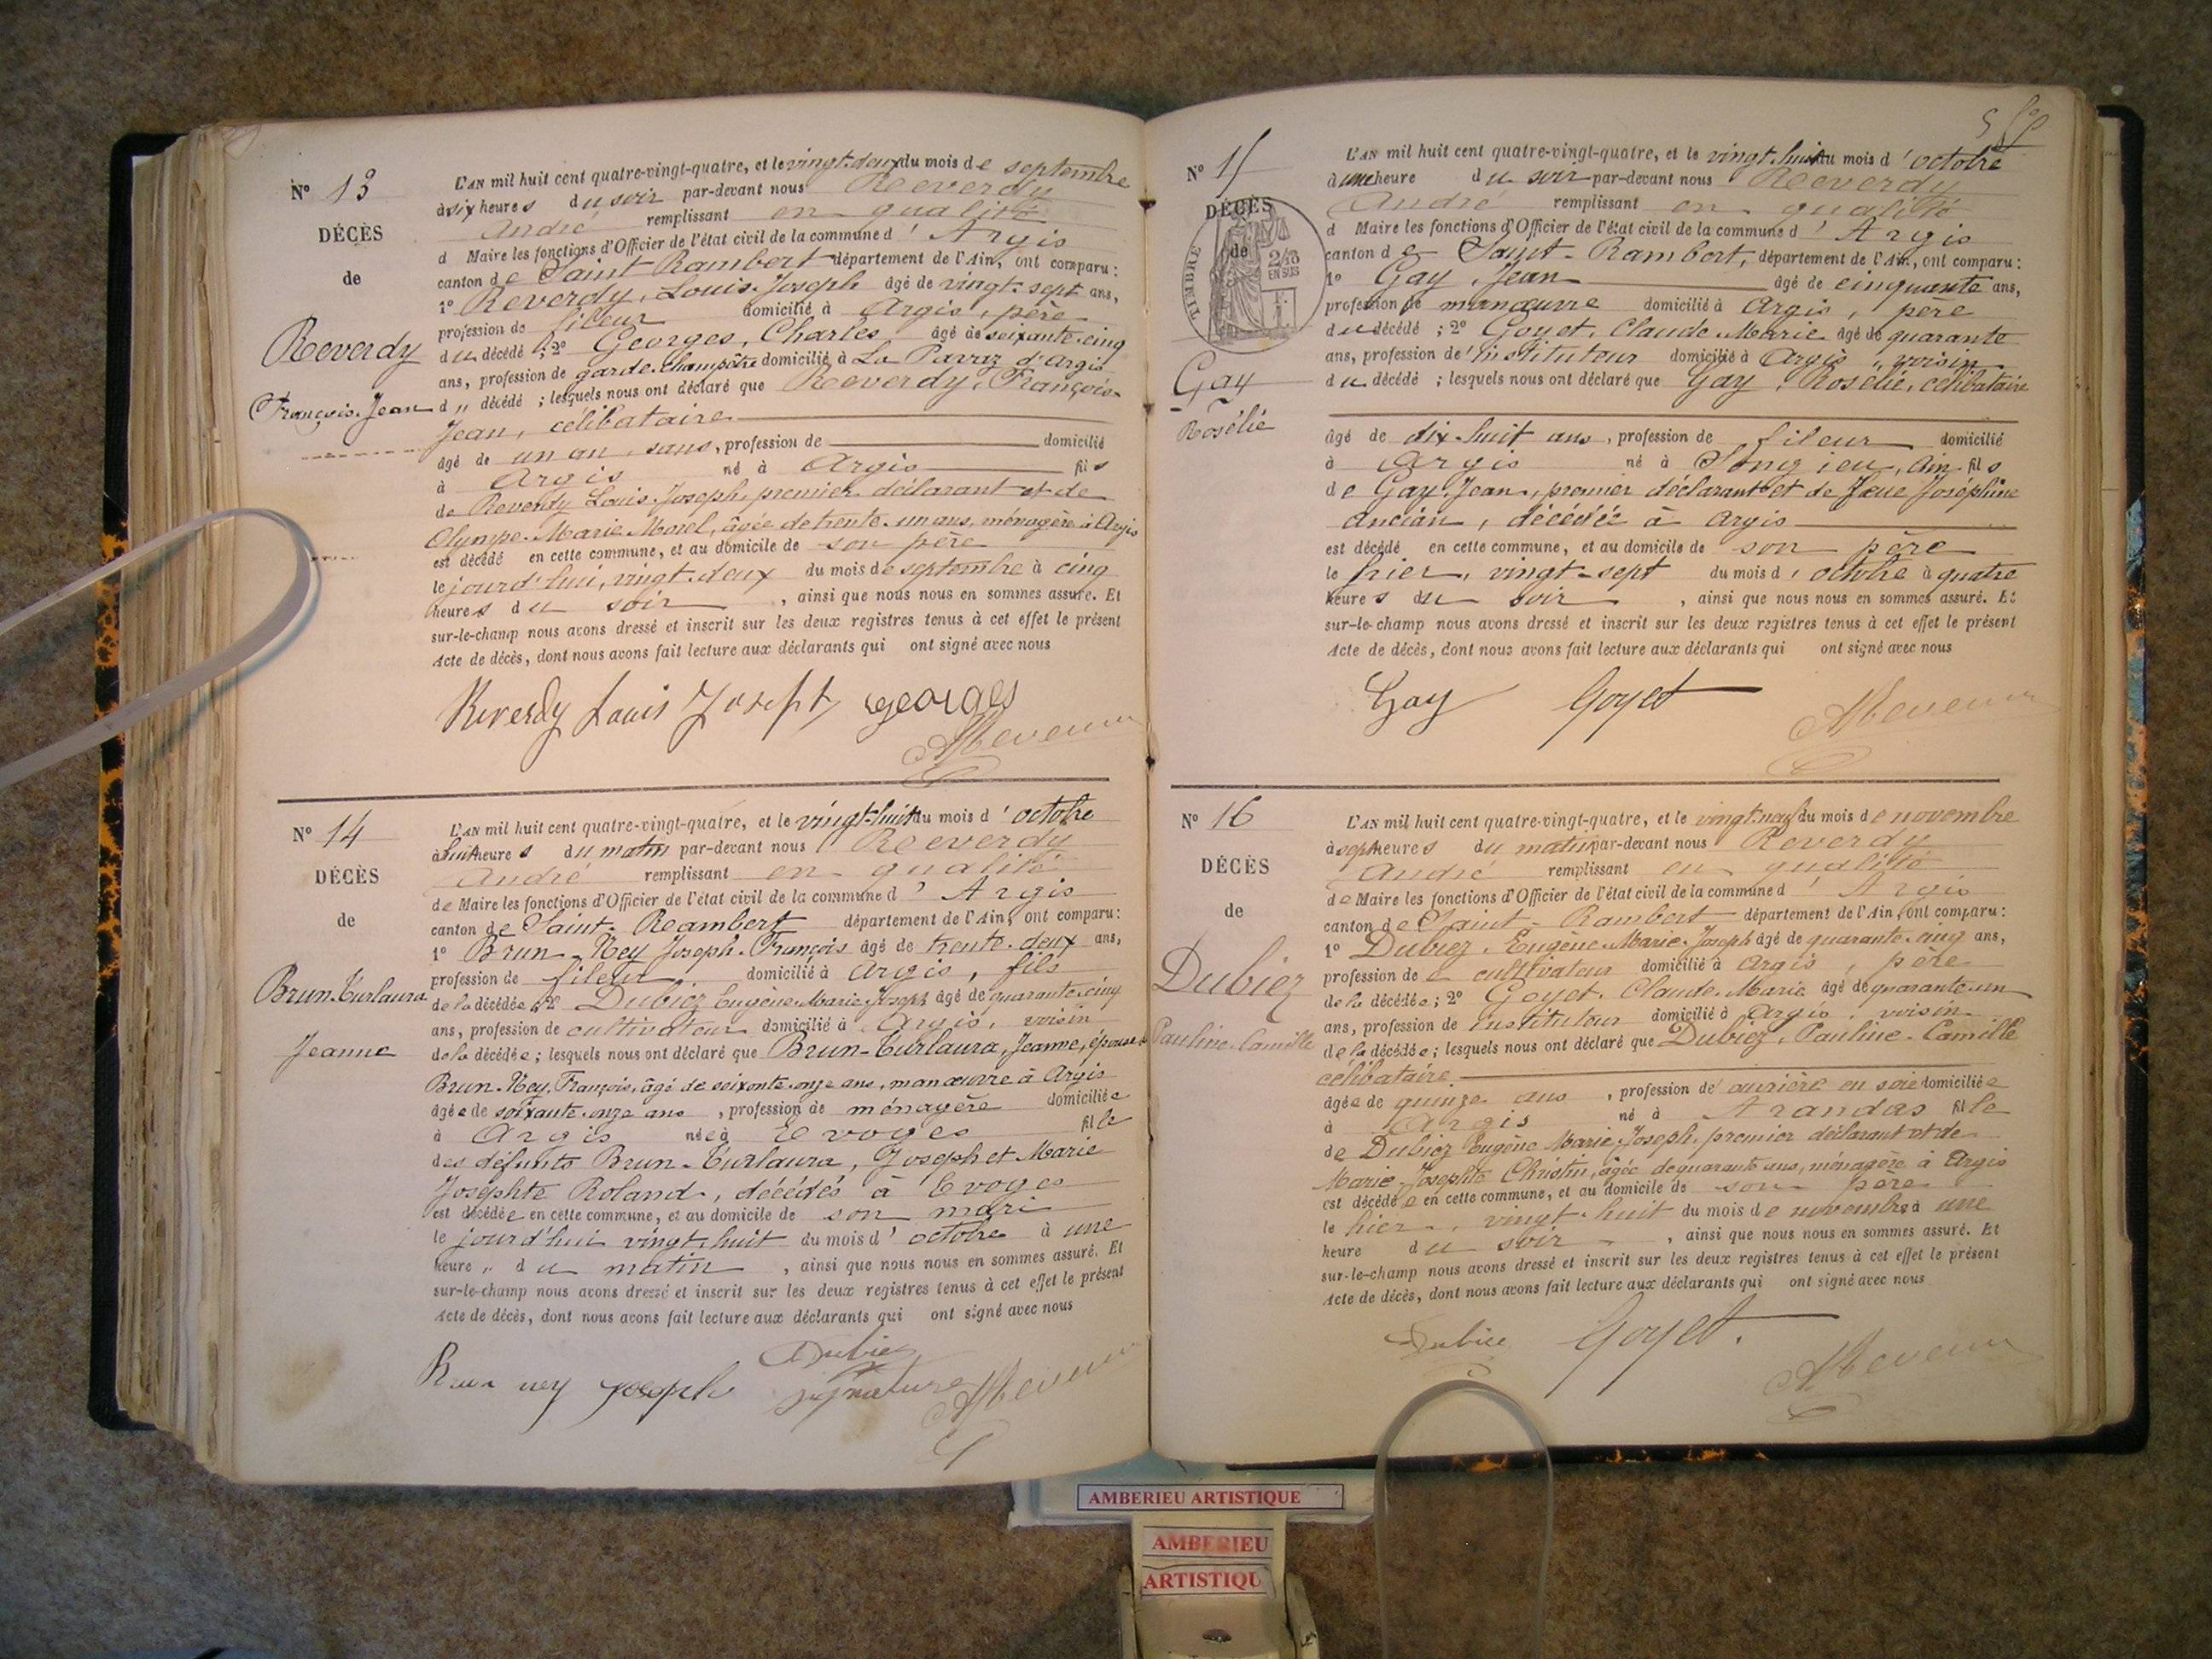 N° 13
DÉCÈS
de
Reverdy
François-Jean
L'AN mil huit cent quatre-vingt-quatre, et le vingt-deux du mois de septembre
à six heures du soir par-devant nous Reverdy
André remplissant en qualité
d Maire les fonctions d'Officier de l'état civil de la commune d'Argis
canton de Saint Rambert département de l'Ain, ont comparu :
1° Reverdy, Louis-Joseph âgé de vingt-sept ans,
profession de fileur domicilié à Argis, père
du décédé ; 2° Georges, Charles âgé de soixante-cinq
ans, profession de garde-champêtre domicilié à La Pavaz d'Argis
d " décédé ; lesquels nous ont déclaré que Reverdy, François-
Jean, célibataire
âgé de un an, sans, profession de domicilié
à Argis né à Argis fils
de Reverdy Louis-Joseph, premier déclarant et de
Olympe-Marie Morel, âgée de trente-un ans, ménagère à Argis
est décédé en cette commune, et au domicile de son père
le jourd'hui, vingt-deux du mois de septembre à cinq
heures du soir, ainsi que nous nous en sommes assuré. Et
sur-le-champ nous avons dressé et inscrit sur les deux registres tenus à cet effet le présent
Acte de décès, dont nous avons fait lecture aux déclarants qui ont signé avec nous
Reverdy Louis Joseph Georges
N° 14
DÉCÈS
de
Brun-Turlaura
Jeanne
L'AN mil huit cent quatre-vingt-quatre, et le vingt-huit du mois d'octobre
à huit heures du matin par-devant nous Reverdy
André remplissant en qualité
de Maire les fonctions d'Officier de l'état civil de la commune d'Argis
canton de Saint-Rambert département de l'Ain, ont comparu :
1° Brun-Ney Joseph-François âgé de trente-deux ans,
profession de fileur domicilié à Argis, fils
de la décédée ; 2° Dubiez Eugène-Marie-Joseph âgé de quarante-cinq
ans, profession de cultivateur domicilié à Argis, voisin
de la décédée ; lesquels nous ont déclaré que Brun-Turlaura, Jeanne, épouse de
Brun-Ney, François, âgé de soixante-onze ans, manœuvre à Argis
âgée de soixante-onze ans, profession de ménagère domiciliée
à Argis née à Evoges fille
des défunts Brun-Turlaura, Joseph et Marie
Joséphte Roland, décédés à Evoges
est décédée en cette commune, et au domicile de son mari
le jourd'hui vingt-huit du mois d'octobre à une
heure " du matin, ainsi que nous nous en sommes assuré. Et
sur-le-champ nous avons dressé et inscrit sur les deux registres tenus à cet effet le présent
Acte de décès, dont nous avons fait lecture aux déclarants qui ont signé avec nous
Dubiez
Brun ney joseph signature
N° 15
DÉCÈS
de
TIMBRE
EN SUS
Gay
Rosélié
L'AN mil huit cent quatre-vingt-quatre, et le vingt-huit du mois d'octobre
à une heure du soir par-devant nous Reverdy
André remplissant en qualité
d Maire les fonctions d'Officier de l'état civil de la commune d'Argis
canton de Saint-Rambert, département de l'Ain, ont comparu :
1° Gay, Jean âgé de cinquante ans,
profession de manœuvre domicilié à Argis, père
du décédé ; 2° Goyet, Claude-Marie âgé de quarante
ans, profession d'instituteur domicilié à Argis, voisin
du décédé ; lesquels nous ont déclaré que Gay, Rosélié, célibataire
âgé de dix-huit ans, profession de fileur domicilié
à Argis né à Songieu, Ain fils
de Gay, Jean, premier déclarant et de Joséphine
Ancian, décédée à Argis
est décédé en cette commune, et au domicile de son père
le hier, vingt-sept du mois d'octobre à quatre
heures du soir, ainsi que nous nous en sommes assuré. Et
sur-le-champ nous avons dressé et inscrit sur les deux registres tenus à cet effet le présent
Acte de décès, dont nous avons fait lecture aux déclarants qui ont signé avec nous
Gay Goyet
N° 16
DÉCÈS
de
Dubiez
Pauline-Camille
L'AN mil huit cent quatre-vingt-quatre, et le vingt-neuf du mois de novembre
à sept heures du matin par-devant nous Reverdy
André remplissant en qualité
de Maire les fonctions d'Officier de l'état civil de la commune d'Argis
canton de Saint-Rambert département de l'Ain, ont comparu :
1° Dubiez, Eugène-Marie-Joseph âgé de quarante-cinq ans,
profession de cultivateur domicilié à Argis, père
de la décédée ; 2° Goyet, Claude-Marie âgé de quarante-un
ans, profession de instituteur domicilié à Argis, voisin
de la décédée ; lesquels nous ont déclaré que Dubiez, Pauline-Camille
célibataire
âgée de quinze ans, profession de ouvrière en soie domiciliée
à Argis né à Arandas fille
de Dubiez Eugène Marie-Joseph, premier déclarant et de
Marie-Josephte Christin, âgée de quarante ans, ménagère à Argis
est décédée en cette commune, et au domicile de son père
le hier, vingt-huit du mois de novembre à une
heure du soir, ainsi que nous nous en sommes assuré. Et
sur-le-champ nous avons dressé et inscrit sur les deux registres tenus à cet effet le présent
Acte de décès, dont nous avons fait lecture aux déclarants qui ont signé avec nous
Dubiez Goyet.
AMBERIEU ARTISTIQUE
AMBERIEU
ARTISTIQU